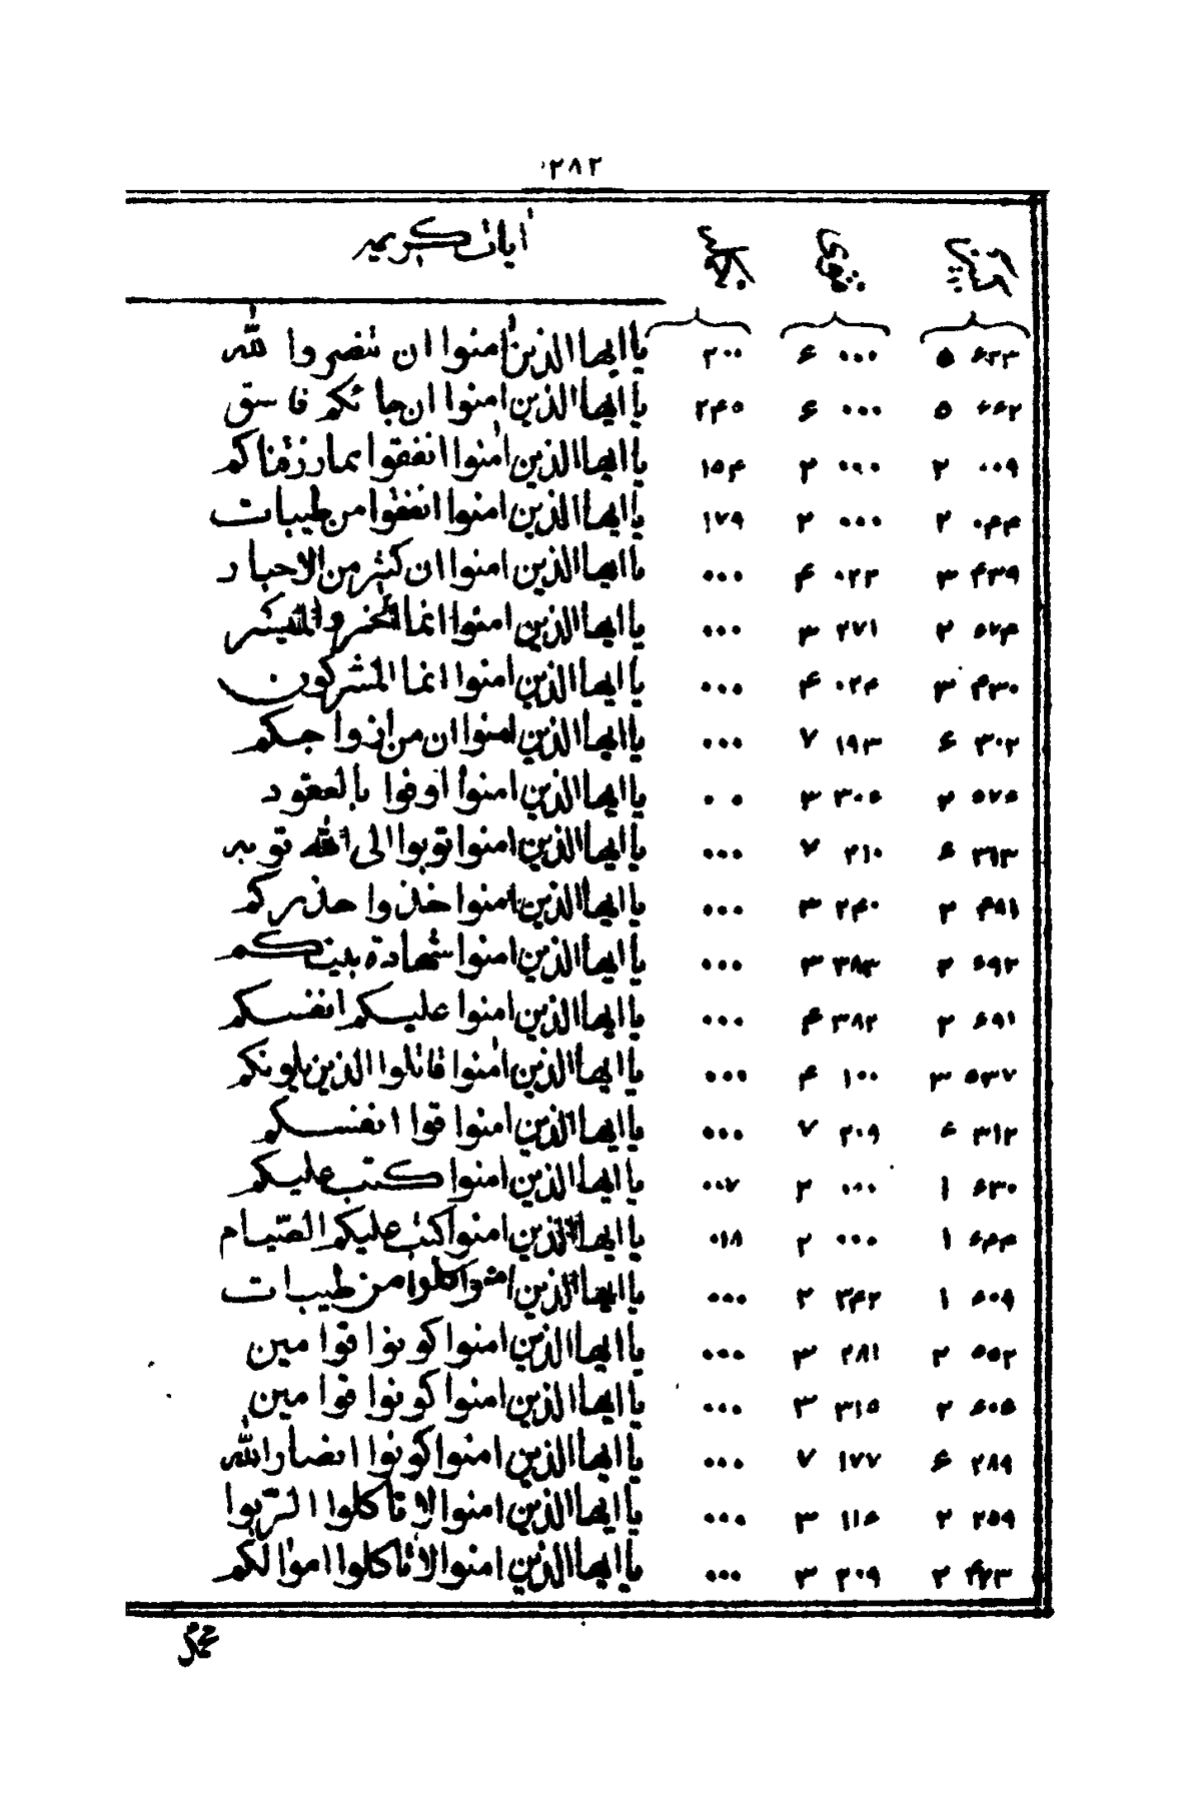 ٢٨٢
آيات كريمه
۶٣٣ ۵ ٠٠٠ ۶ ٢٠٠ يا ايها الذين امنوا ان تنصروا لله
۶۶٢ ۵ ٠٠٠ ۶ ٢۴۵ يا ايها الذين امنوا ان جائكم فاسق
٠٠٩ ٢ ٠٠٠ ٢ ١۵۴ يا ايها الذين امنوا انفقوا بما رزقناكم
٠۴۴ ٢ ٠٠٠ ٢ ١٧٩ يا ايها الذين امنوا انفقوا من طيبات
۴٣٩ ٣ ٠٢٣ ۴ ٠٠٠ يا ايها الذين امنوا ان كثير من الاحبار
۵٧۴ ٢ ٢٧١ ٣ ٠٠٠ يا ايها الذين امنوا انما الخمر والميسر
۴٣٠ ٣ ٠٢۴ ۴ ٠٠٠ يا ايها الذين امنوا انما المشركون
٣٠٢ ۶ ١٩٣ ٧ ٠٠٠ يا ايها الذين امنوا ان من ازواجكم
۵٧۵ ٢ ٣٠۵ ٣ ٠ ٠ يا ايها الذين امنوا اوفوا بالعقود
٣١٣ ۶ ٢١٠ ٧ ٠٠٠ يا ايها الذين امنوا توبوا الى الله توبه
۴٨١ ٢ ٢۴٠ ٣ ٠٠٠ يا ايها الذين امنوا خذوا حذركم
۶٩٢ ٢ ٣٨٣ ٣ ٠٠٠ يا ايها الذين امنوا شهادة بينكم
۶٩١ ٢ ٣٨٢ ۴ ٠٠٠ يا ايها الذين امنوا عليكم انفسكم
۵٣٧ ٣ ١٠٠ ۴ ٠٠٠ يا ايها الذين امنوا قاتلوا الذين يلونكم
٣١٢ ۶ ٢٠٩ ٧ ٠٠٠ يا ايها الذين امنوا قوا انفسكم
۶٣٠ ١ ٠٠٠ ٢ ٠٠٧ يا ايها الذين امنوا كتب عليكم
۶۴۴ ١ ٠٠٠ ٢ ٠١٨ يا ايها الذين امنوا كتب عليكم الصيام
۶٠٩ ١ ٣۴٢ ٢ ٠٠٠ يا ايها الذين امنوا كلوا من طيبات
۵۵٢ ٢ ٢٨١ ٣ ٠٠٠ يا ايها الذين امنوا كونوا قوامين
۶٠۵ ٢ ٣١۵ ٣ ٠٠٠ يا ايها الذين امنوا كونوا قوامين
٢٨٩ ۶ ١٧٧ ٧ ٠٠٠ يا ايها الذين امنوا كونوا انصار الله
٢۵٩ ٢ ١١۶ ٣ ٠٠٠ يا ايها الذين امنوا لا تاكلوا الربوا
۴٢٣ ٢ ٢٠٩ ٣ ٠٠٠ يا ايها الذين امنوا لا تاكلوا اموالكم